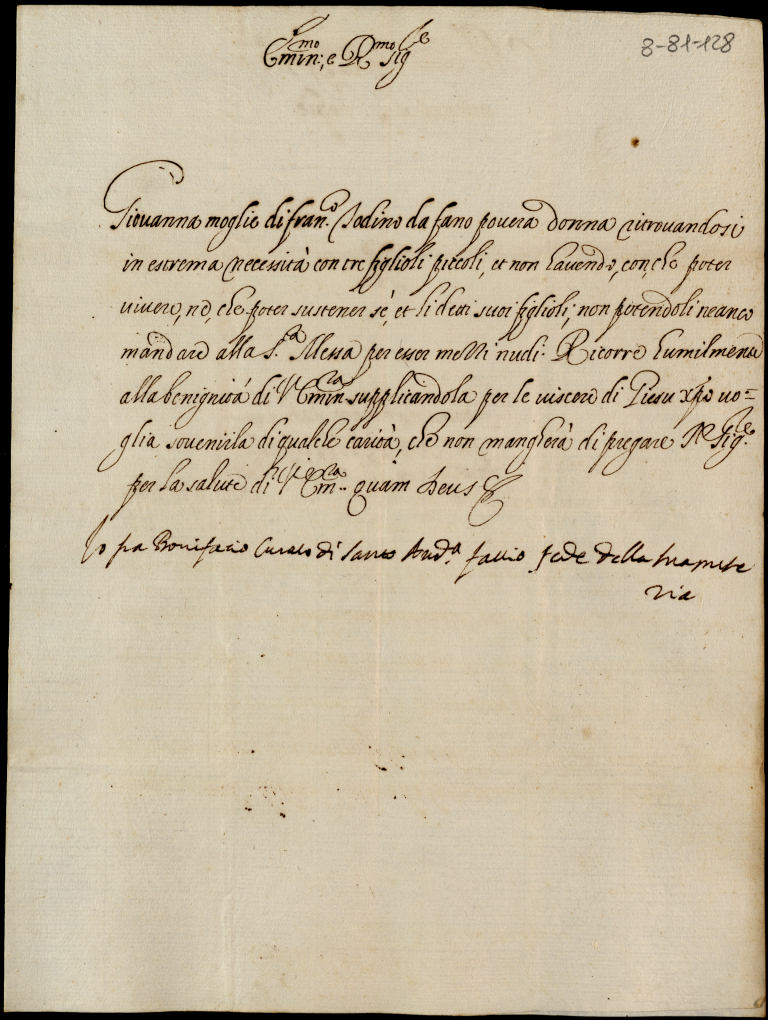 8-81-128
Emin:mo e Rmo Sigre
Giovanna moglie di fran.co Sodino da fano povera donna ritrovandosi
in estrema necessità con tre figlioli piccoli, et non havendo, con, che poter
vivere, nè, che poter sustener sè, et li detti suoi figlioli, non potendoli neanco
mandare alla S.ta Messa per esser mezzi nudi: Ricorre humilmente
alla benignità di V Eminza supplicandola per le viscere di Giesu xpo vo=
glia sovenirla di qualche carità, che non mancherà di pregare N Sigre.
per la salute di V Em.za quam Deus &
Io fra Bonifatio Curato di Santo And.a faccio fede della sua mise
ria